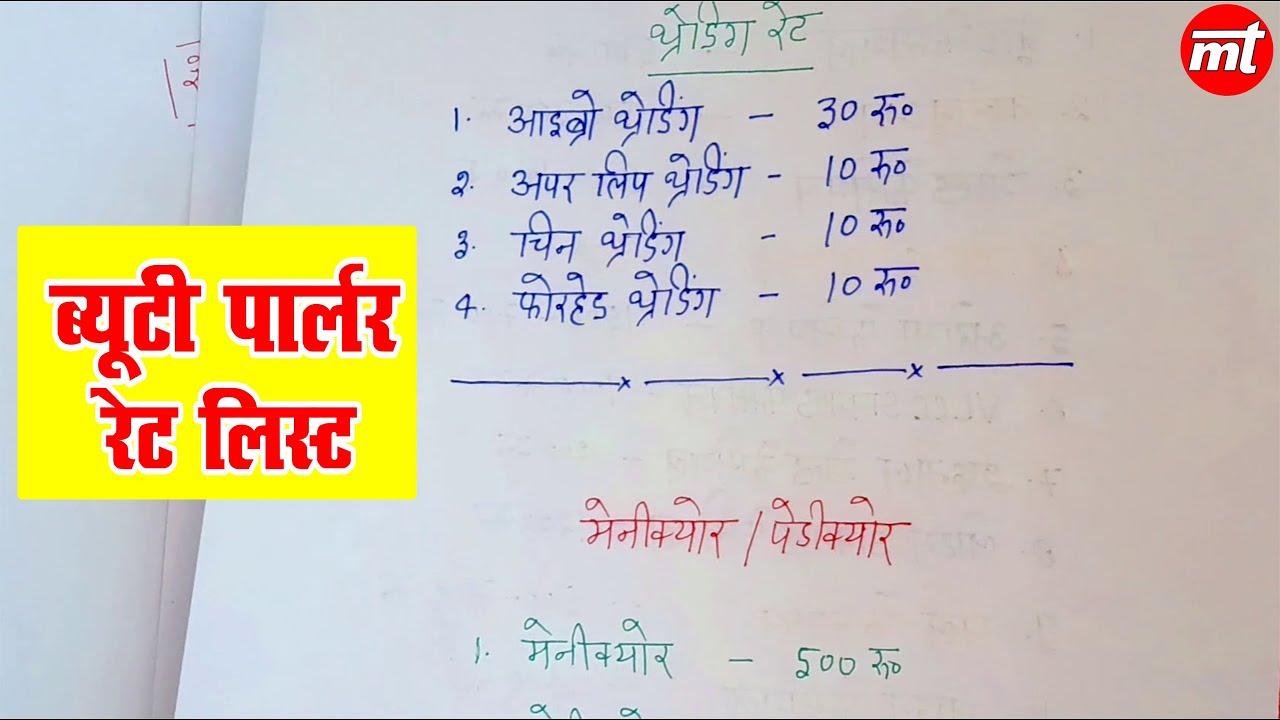 थ्रेडिंग रेट
1. आइब्रो थ्रेडिंग - 30 रू०
2. अपर लिप थ्रेडिंग - 10 रू०
3. चिन थ्रेडिंग - 10 रू०
4. फोरहेड थ्रेडिंग - 10 रू०
मेनीक्योर / पेडीक्योर
1. मेनीक्योर - 500 रू०
ब्यूटी पार्लर
रेट लिस्ट
mt